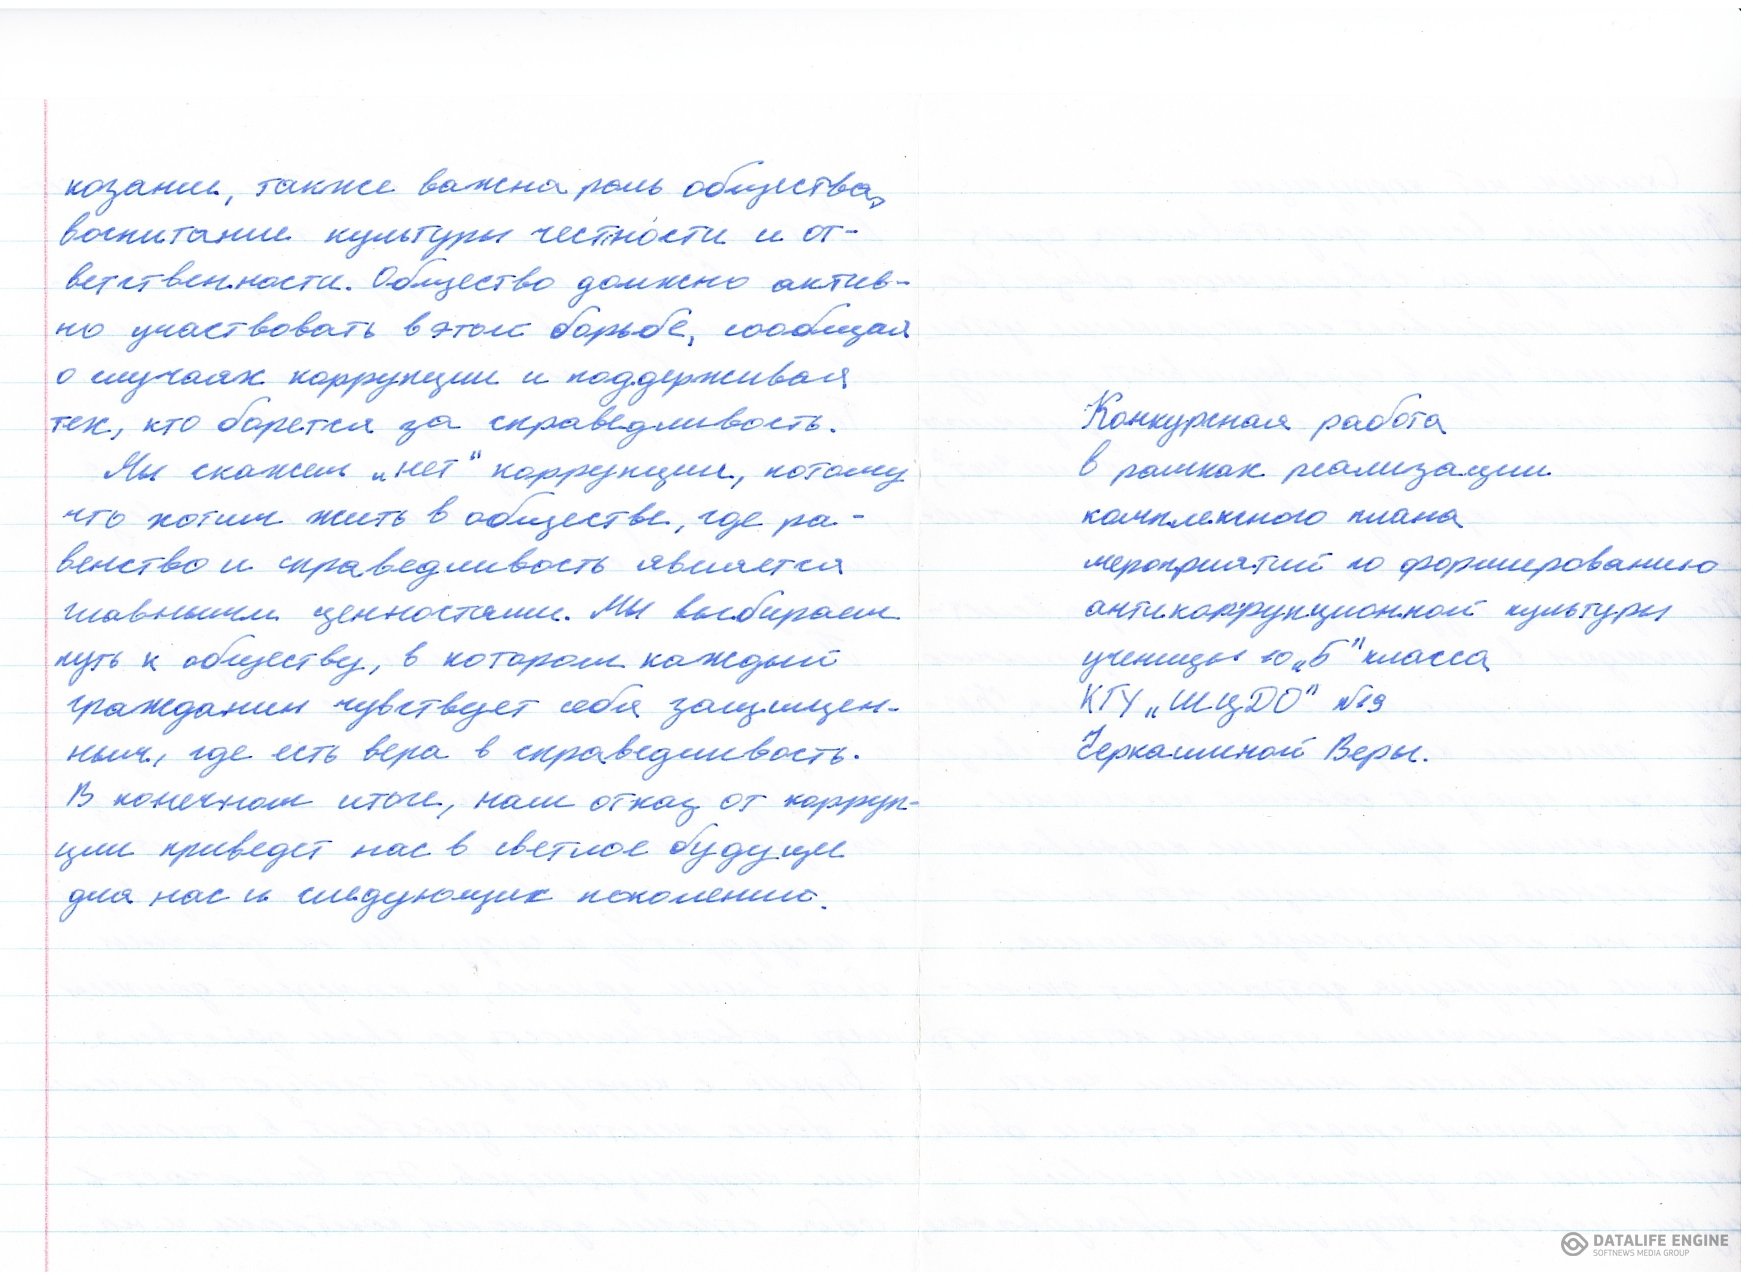 козании, также важна роль общества,
воспитание культуры честности и от-
ветственности. Общество должно актив-
но участвовать в этой борьбе, сообщая
о случаях коррупции и поддерживая
тех, кто борется за справедливость.
Мы скажем „нет" коррупции, потому
что хотим жить в обществе, где ра-
венство и справедливость является
главными ценностями. Мы выбираем
путь к обществу, в котором каждый
гражданин чувствует себя защищен-
ным, где есть вера в справедливость.
В конечном итоге, наш отказ от корруп-
ции приведет нас в светлое будущее
для нас и следующих поколений.
Конкурсная работа
в рамках реализации
комплексного плана
мероприятий по формированию
антикоррупционной культуры
ученицы 10 „Б" класса
КГУ „ШЦДО" №19
Черкашиной Веры.
DATALIFE ENGINE
SOFTNEWS MEDIA GROUP